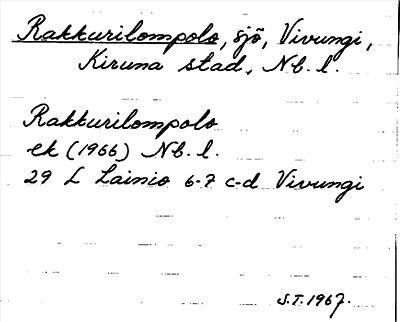 Rakkurilompolo, sjö, Vivungi,
Kiruna stad, Nb. l.
Rakkurilompolo
ek (1966) Nb. l.
29 L Lainio 6-7 c-d Vivungi
S.T. 1967.